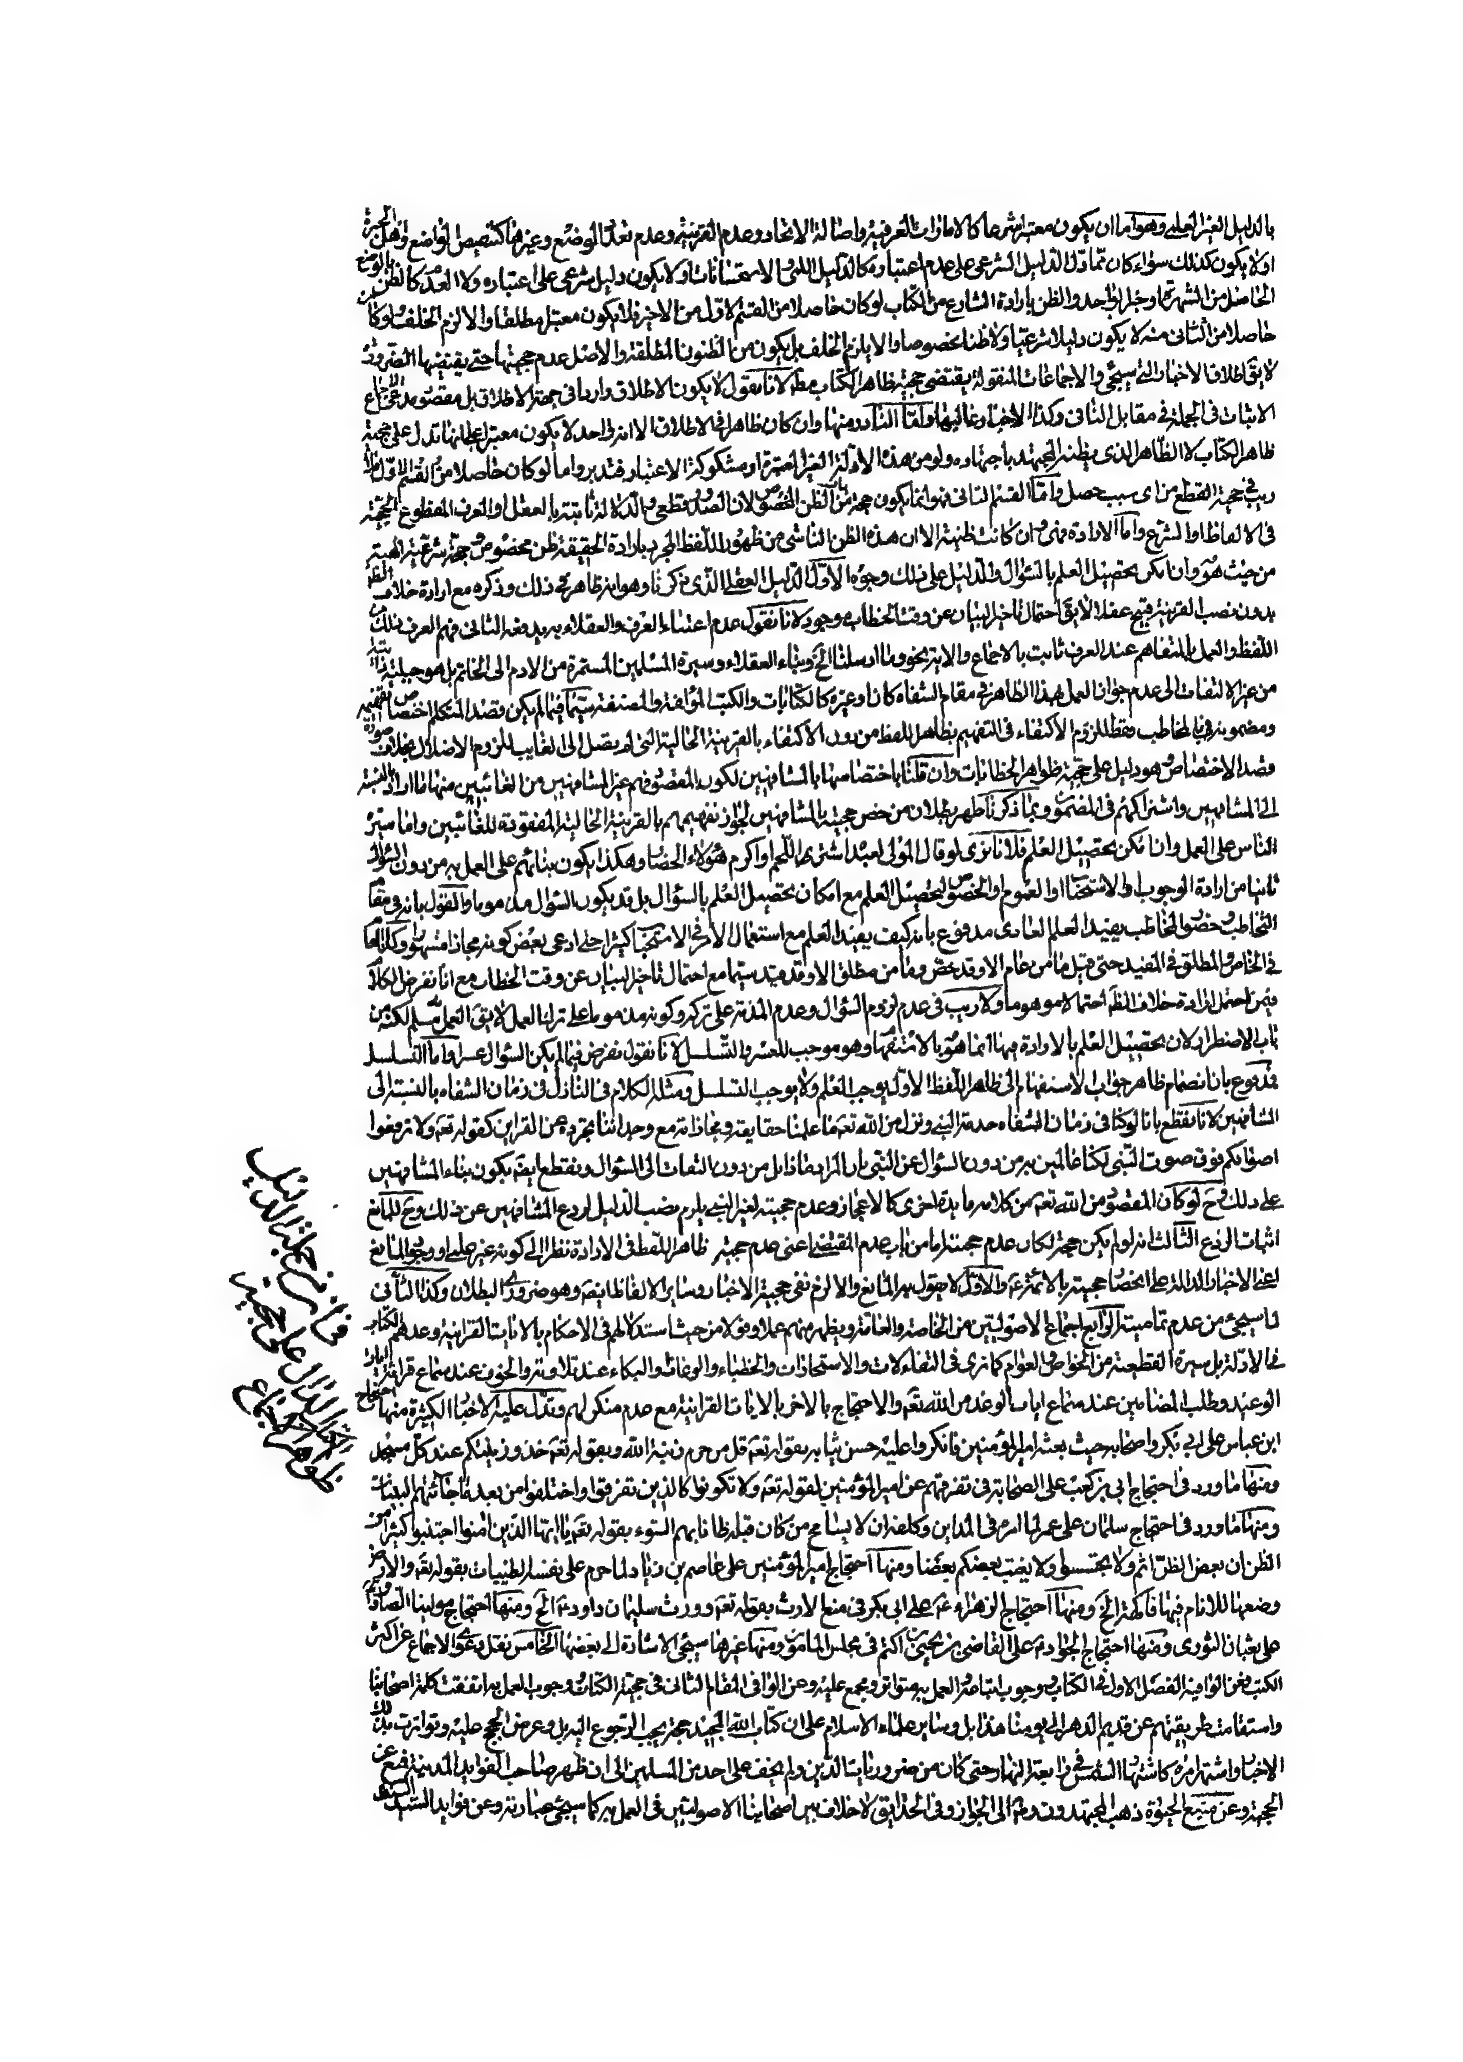 بالدليل الغير العلمي وهو اما ان يكون معتبرا شرعا كالامارات العرفية واصالة الاتحاد وعدم القرينة وعدم تعدد الوضع وغيرها كتنصيص الواضع واهل الخبرة
اولا يكون كذلك سواء كان مما دل الدليل الشرعي على عدم اعتباره كالدليل اللمي والاستحسانات اولا يكون دليل شرعي على اعتباره ولا العدم كالظن بالوضع
الحاصل من الشهرة او خبر الواحد والظن بارادة الشارع من الكتاب لو كان حاصلا من القسم الاول من الاخير فلا يكون معتبرا مطلقا والا لزم الخلف ولو كان
حاصلا من الثاني منه لا يكون دليلا شرعيا ولا ظنا مخصوصا والا يلزم الخلف بل يكون من الظنون المطلقة والاصل عدم حجيتها حتى يقتضيها الضرورة
لا يق اطلاق الاخبار التي سيجئ والاجماعات المنقولة يقتضي حجية ظاهر الكتاب مط لانا نقول لا يكون الاطلاق واردا في جهة الاطلاق بل مقصود مدعي الاجماع
الاثبات في الجملة في مقابل النافي وكذا الاخبار غالبها واما النادر منها وان كان ظاهرا في الاطلاق الا انه واحد لا يكون معتبرا علما بانها تدل على حجية
ظاهر الكتاب لا الظاهر الذي يظنه المجتهد باجتهاده ولو من هذه الادلة الغير المعتبرة او مشكوكة الاعتبار فتدبر واما لو كان حاصلا من القسم الاول فلا
ريب في حجية القطع من اي سبب حصل واما القسم الثاني فهو انما يكون حجة من باب الظن المخصوص لان الصدور قطعي والدلالة ثابتة بالعقل او العرف المقطوع الحجية
في الالفاظ او الشرع واما الارادة فهي وان كانت ظنية الا ان هذه الظن الناشي من ظهور اللفظ المجرد بارادة الحقيقة ظن مخصوص حجة شرعية الهية
من حيث هو وان يمكن تحصيل العلم بالسؤال والدليل على ذلك وجوه الاول الدليل العقلي الذي ذكرنا وهو انه ظاهر في ذلك وذكره مع ارادة خلاف الظ
بدون نصب القرينة قبيح عقلا لا يق احتمال تاخير البيان عن وقت الخطاب موجود لانا نقول عدم اعتناء العرف والعقلاء به يدفعه الثاني فهم العرف ذلك من
اللفظ والعمل بالمتفاهم عند العرف ثابت بالاجماع والاية نحو وما ارسلنا الخ وبناء العقلاء وسيرة المسلمين المستمرة من الادم الى الخاتم بل هو جبلية
من غير الالتفات الى عدم جواز العمل بهذا الظاهر في مقام الشفاه كان او غيره كالكتابات والكتب المؤلفة والمصنفة سيما فيما لم يكن قصد المتكلم اختصاص تفهيمه
ومضمونه في بالمخاطب فقط للزوم الاكتفاء في التفهيم بظاهر اللفظ من دون الاكتفاء بالقرينة الحالية التي لم يصل الى الغايب للزوم الاضلال بخلاف صورة
قصد الاختصاص هو دليل على حجية ظواهر الخطابات وان قلنا باختصاصها بالمشافهين لكون المقصود فهم غير المشافهين من الغائبين منها ما اراد بالنسبة
الى المشافهين واشتراكهم في المضمون وبما ذكرنا ظهر بطلان من خص حجيته بالمشافهين لجواز تفهيمهم بالقرينة الحالية المفقودة للغائبين واما سيرة
الناس على العمل وان امكن تحصيل العلم فلانا نرى لو قال المولى لعبد اشتر هذا اللحم او اكرم هؤلاء الحضار وهكذا يكون بنائهم على العمل به من دون السؤال
ثانيا من ارادة الوجوب او الاستحباب او العموم او الخصوص لتحصيل العلم مع امكان تحصيل العلم بالسؤال بل قد يكون السؤال مذموما والقول بانه في مقام
التخاطب وحضور المخاطب يفيد العلم العادى مدفوع بانه كيف يفيد العلم مع استعمال الامر في الاستحباب كثيرا حتى ادعى بعض كونه مجازا مشهورا وكذا العام
في الخاص والمطلق في المقيد حتى قيل ما من عام الا وقد خص وما من مطلق الا وقد قيد سيما مع احتمال تاخير البيان عن وقت الخطاب مع انا نفرض الكلام
فيمن احتمل ارادة خلاف الظ احتمالا موهوما ولا ريب في عدم لزوم السؤال وعدم المذمة على تركه وكونه مذموما على ترك العمل لا يق العمل به مسلم لكنه من
باب الاضطرار لان تحصيل العلم بالارادة فيها انما هو بالاستفهام وهو موجب للعسر والتسلسل لانا نقول نفرض فيما لم يكن السؤال عسرا واما التسلسل
فمدفوع بان انضمام ظاهر جواب الاستفهام الى ظاهر اللفظ الاول يوجب العلم ولا يوجب التسلسل ومثله الكلام في النازل في زمان الشفاه بالنسبة الى
المشافهين لانا نقطع بانا لو كنا في زمان الشفاه حدمة النبي ونزل من الله تعه ما علمنا حقايقه ومجازاته مع وحداننا تجرده عن القراين كقوله تعه ولا ترفعوا
اصواتكم فوق صوت النبي لكنا عالمين به من دون السؤال عن النبي بان المراد ماذا بل من دون التفات الى السؤال ونقطع ايضه بكون بناء المشافهين
على ذلك وح لو كان المقصود من الله تعه من كلامه فايدة اخرى كالاعجاز وعدم حجيته لغير النبي يلزم نصب الدليل لردع المشافهين عن ذلك وح للمانع
اثبات الردع الثالث انه لو لم يكن حجة لكان عدم حجيته اما من باب عدم المقتضي اعني عدم حجية ظاهر اللفظ في الارادة نظرا الى كونه غير علمي او وجود المانع
اعني الاخبار الدالة على اختصاص حجيته بالائمة ع والاول لا يقول به المانع والا لزم نفي حجية الاخبار وساير الالفاظ ايضه وهو ضروري البطلان وكذا الثاني
لما سيجئ من عدم تماميته الرابع اجماع الاصوليين من الخاصة والعامة ويظهر منهم عملا وقولا من حيث استدلالهم في الاحكام بالايات القرانية وعدهم الكتاب
في الادلة بل سيرة القطعية من الخواص والعوام كما ترى في التفاءلات والاستخارات والخطباء والوعاظ والبكاء عند تلاوته والخوف عند سماع قرائة ايات
الوعيد وطلب المضامين عند سماع ايات الوعد من الله تعه والاحتجاج بالاخر بالايات القرانية مع عدم منكر لهم وتدل عليه الاخبار الكثيرة منها احتجاج
ابن عباس على ابي بكر واصحابه حيث بعثه امير المؤمنين فانكروا عليه حسن ثيابه بقوله تعه قل من حرم زينة الله وبقوله تعه خذوا زينتكم عند كل مسجد
ومنها ما ورد في احتجاج ابي بن كعب على الصحابة في تفرقهم عن امير المؤمنين لقوله تعه ولا تكونوا كالذين تفرقوا واختلفوا من بعد ما جائتهم البينات
ومنها ما ورد في احتجاج سلمان على عمر لما امره في المداين وكلفه ان لا يسامح من كان قبله ظانا بهم السوء بقوله تعه يا ايها الذين امنوا اجتنبوا كثيرا من
الظن ان بعض الظن اثم ولا تجسسوا ولا يغتب بعضكم بعضا ومنها احتجاج امير المؤمنين على عاصم بن زياد لما حرم على نفسه الطيبات بقوله تعه والارض
وضعها للانام فيها فاكهة الخ ومنها احتجاج الزهراء عه على ابي بكر في منع الارث بقوله تعه وورث سليمان داود عه الخ ومنها احتجاج مولينا الصادق
على سفيان الثورى ومنها احتجاج الجواد عه على القاضي يحيى بن اكثم في مجلس المامون ومنها غيرها سيجئ الاشارة الى بعضها الخامس نقل دعوى الاجماع عن اكثر
الكتب فعن الوافية الفصل الاول في الكتاب ووجوب اتباعه والعمل به متواتر ومجمع عليه وعن الوافي المقام الثاني في حجية الكتاب ووجوب العمل به اتفقت كلمة اصحابنا
واستقامت طريقتهم عن قديم الدهر الى يومنا هذا بل وساير علماء الاسلام على ان كتاب الله المجيد حجة يجب الرجوع اليه بل وعرض الحجج عليه وتواترت بذلك
الاخبار واشتهر امره كاشتهار الشمس في رابعة النهار حتى كان من ضروريات الدين ولم يخف على احد من المسلمين الى ان ظهر صاحب الفوايد المدنية فمنع عن
الحجية وعن منبع الحيوة ذهب المجتهدون رضه الى الجواز وفي الحدايق لا خلاف بين اصحابنا الاصوليين في العمل به كما سيجئ عبارته وعن فوايد السيد السند
فان من جملة الدليل
الدال على حجية
ظواهر الكتاب الاجماع